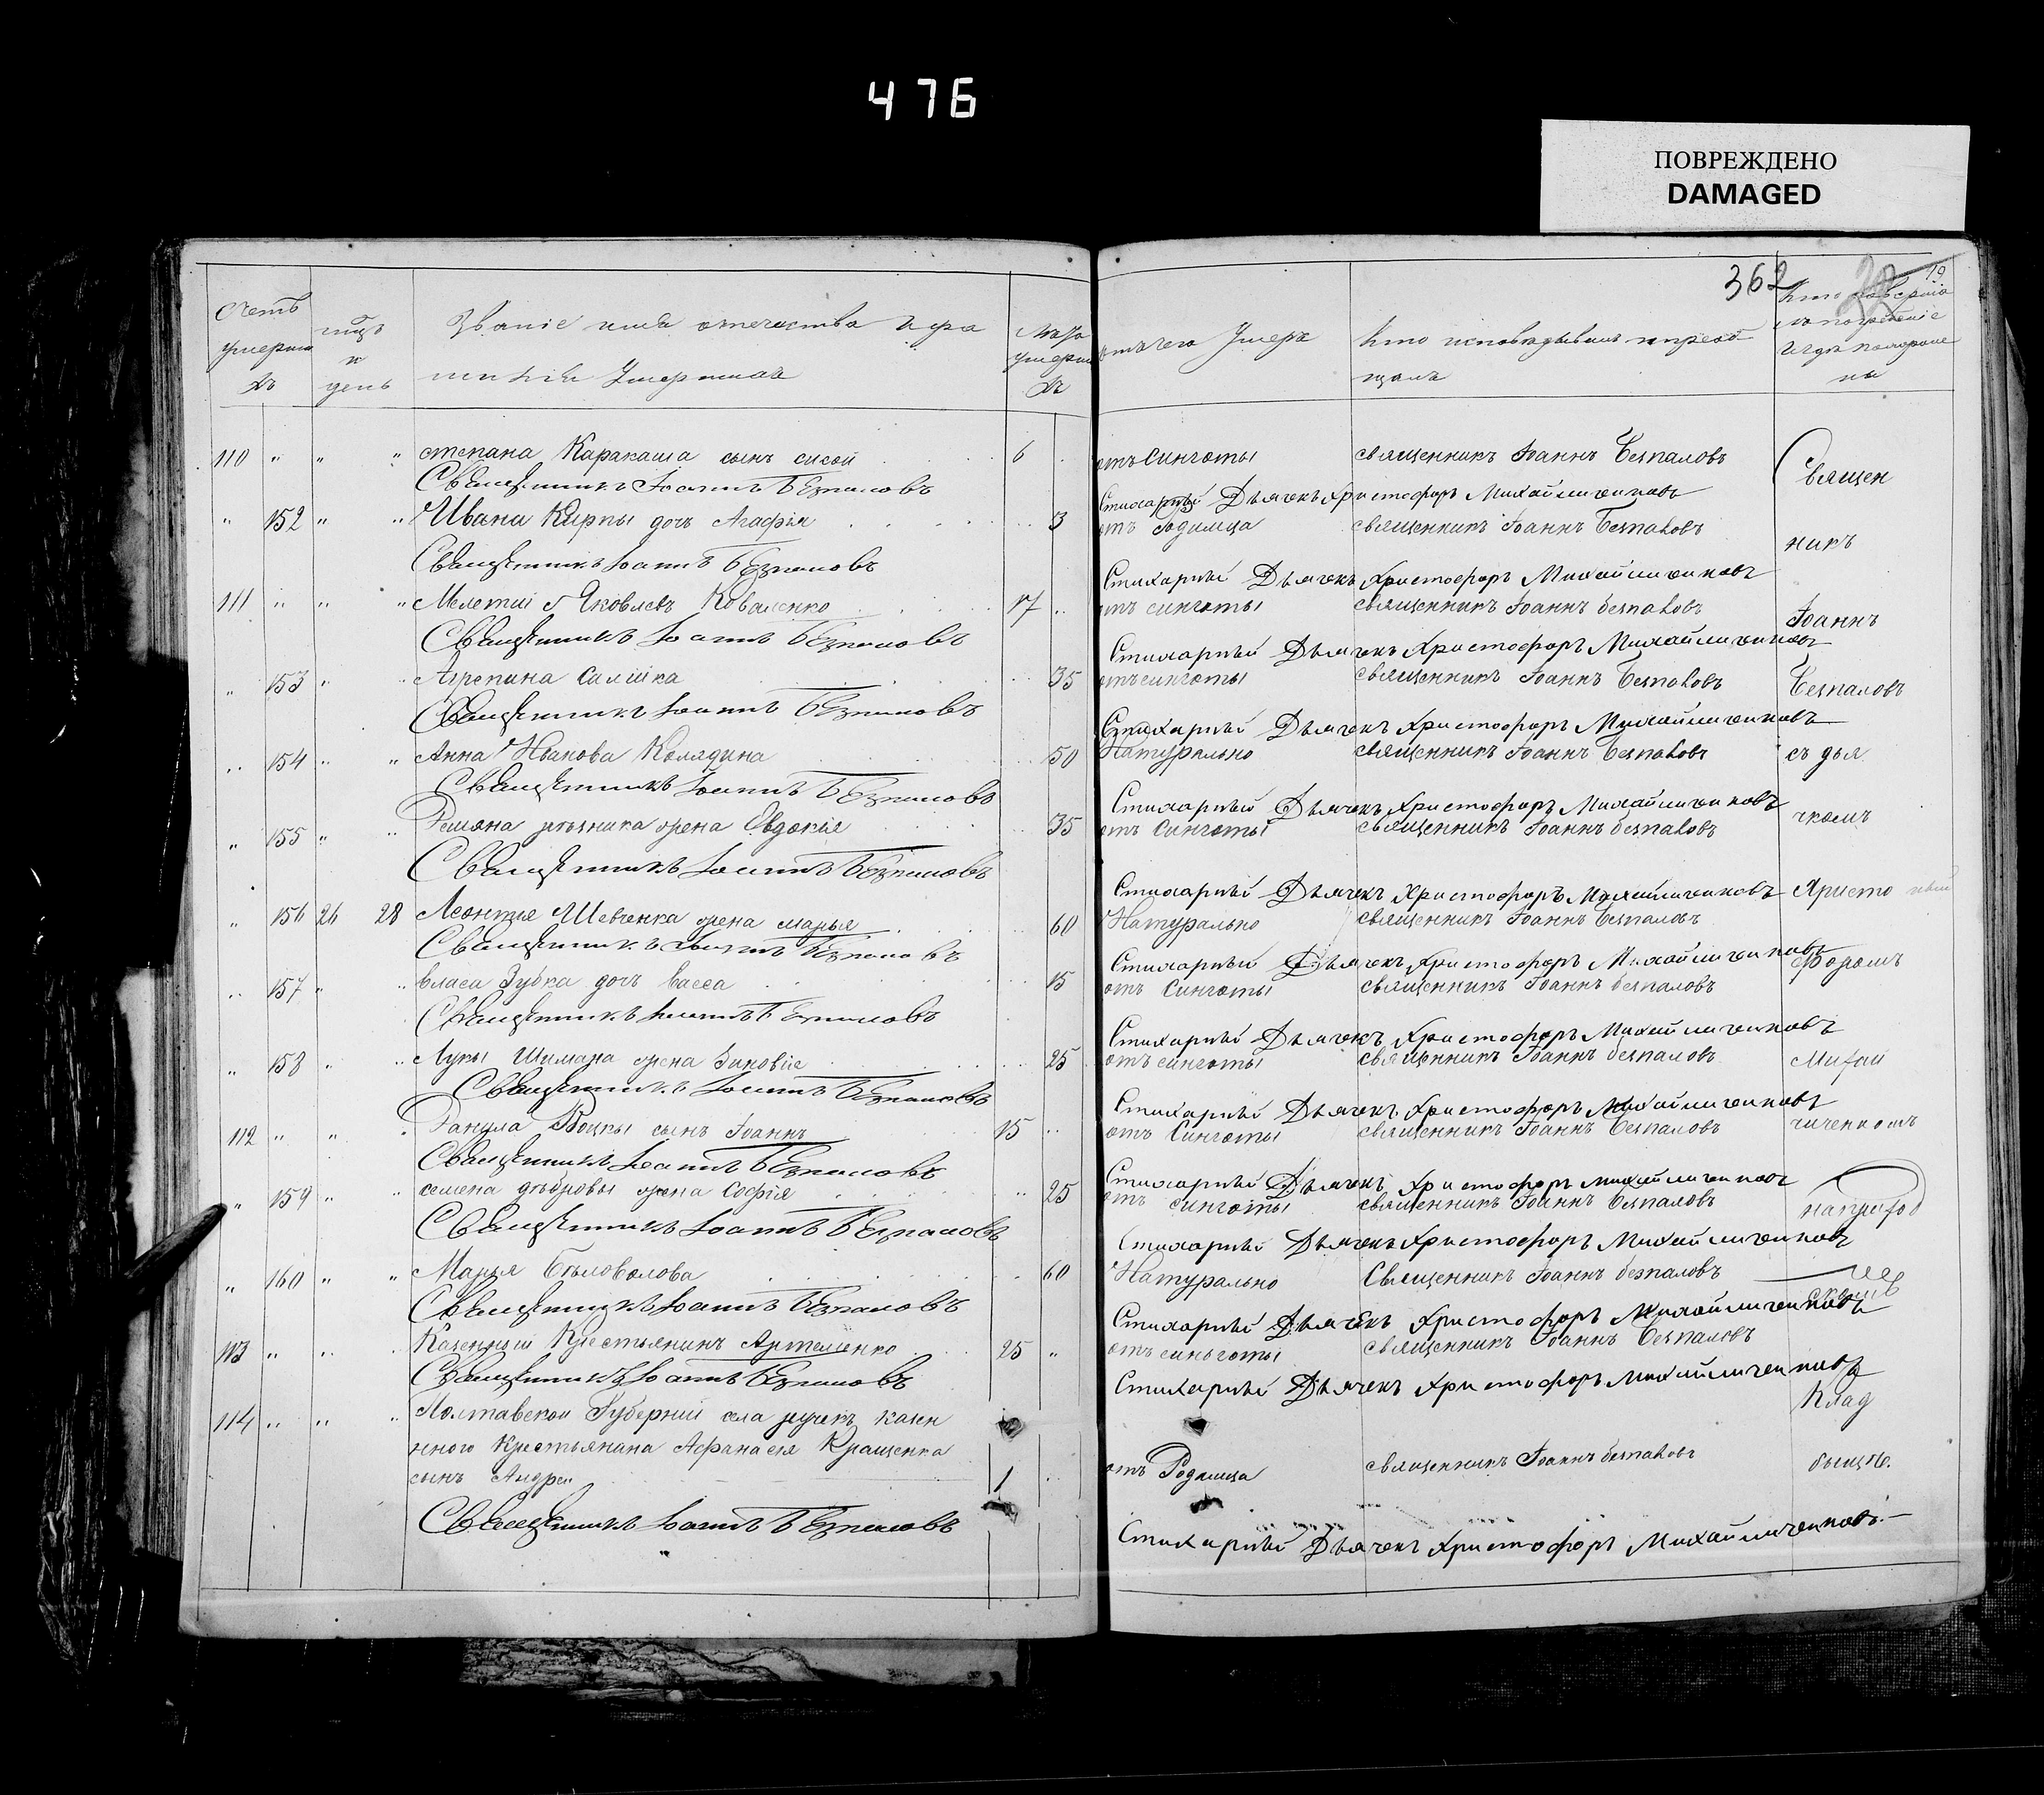 476
ПОВРЕЖДЕНО
DAMAGED
362
19
Счетъ умерши хъ
мцъ и день
Званіе имя отечество и фа
милія Умершихъ
Лѣта умерши хъ
отъ чего Умеръ
Кто исповѣдывалъ и приоб
щалъ
Кто совершіа
лъ погребеніе
и где погребе
ны
110 " " " степана Каракаша сынъ сисой 6 отъ Синготы священникъ Іоаннъ Безпаловъ Священ
Священникъ Іоаннъ Безпаловъ Стихарный Дьячекъ Христофоръ Михайличенковъ
" 152 " " Ивана Кирпы дочь Агафія 3 отъ Родимца священникъ Іоаннъ Безпаловъ никъ
Священникъ Іоаннъ Безпаловъ Стихарный Дьячекъ Христофоръ Михайличенковъ
111 " " " Мелетий Яковлевъ Коваленко 17 " отъ синготы священникъ Іоаннъ безпаловъ Іоаннъ
Священникъ Іоаннъ Безпаловъ Стихарный Дьячекъ Христофоръ Михайличенковъ
" 153 " " Агрепина 35 отъ синготы священникъ Іоаннъ Безпаловъ Безпаловъ
Священникъ Іоаннъ Безпаловъ Стихарный Дьячекъ Христофоръ Михайличенковъ
" 154 " " Анна Иванова Колядина 50 Натурально священникъ Іоаннъ Безпаловъ съ дья
Священникъ Іоаннъ Безпаловъ Стихарный Дьячекъ Христофоръ Михайличенковъ
" 155 " " жена Евдокія 35 отъ Синготы священникъ Іоаннъ безпаловъ чкомъ
Священникъ Іоаннъ Безпаловъ Стихарный Дьячекъ Христофоръ Михайличенковъ Христо
" 156 26 28 Леонтія Шевченка жена марья 60 Натурально священникъ Іоаннъ Безпаловъ
Священникъ Іоаннъ Безпаловъ Стихарный Дьячекъ Христофоръ Михайличенковъ форомъ
" 157 " " власа Зубка дочь васса 15 отъ Синготы священникъ Іоаннъ безпаловъ
Священникъ Іоаннъ Безпаловъ Стихарный Дьячекъ Христофоръ Михайличенковъ
" 158 " " Луки Шамара жена Зиновія 25 отъ синготы священникъ Іоаннъ безпаловъ Михай
Священникъ Іоаннъ Безпаловъ Стихарный Дьячекъ Христофоръ Михайличенковъ
112 " " " сынъ Іоаннъ 15 " отъ Синготы священникъ Іоаннъ Безпаловъ личенкомъ
Священникъ Іоаннъ Безпаловъ Стихарный Дьячекъ Христофоръ Михайличенковъ
" 159 " " семена дѣбровы жена Софія " 25 отъ синготы священникъ Іоаннъ Безпаловъ наприход
Священникъ Іоаннъ Безпаловъ Стихарный Дьячекъ Христофоръ Михайличенковъ
" 160 " " Марья Бѣловолова 60 Натурально Священникъ Іоаннъ безпаловъ скомъ
Священникъ Іоаннъ Безпаловъ Стихарный Дьячекъ Христофоръ Михайличенковъ
113 " " " Казенный Крестьянинъ Артеменко 25 " отъ синьготы священникъ Іоаннъ Безпаловъ
Священникъ Іоаннъ Безпаловъ Стихарный Дьячекъ Христофоръ Михайличенковъ
114 " " " Полтавской Губерніи села казен Клад
нного Крестьянина Афанасія Кращенка
сынъ Андрей 1 " отъ Родимца священникъ Іоаннъ безпаловъ быще.
Священникъ Іоаннъ Безпаловъ Стихарный Дьячекъ Христофоръ Михайличенковъ